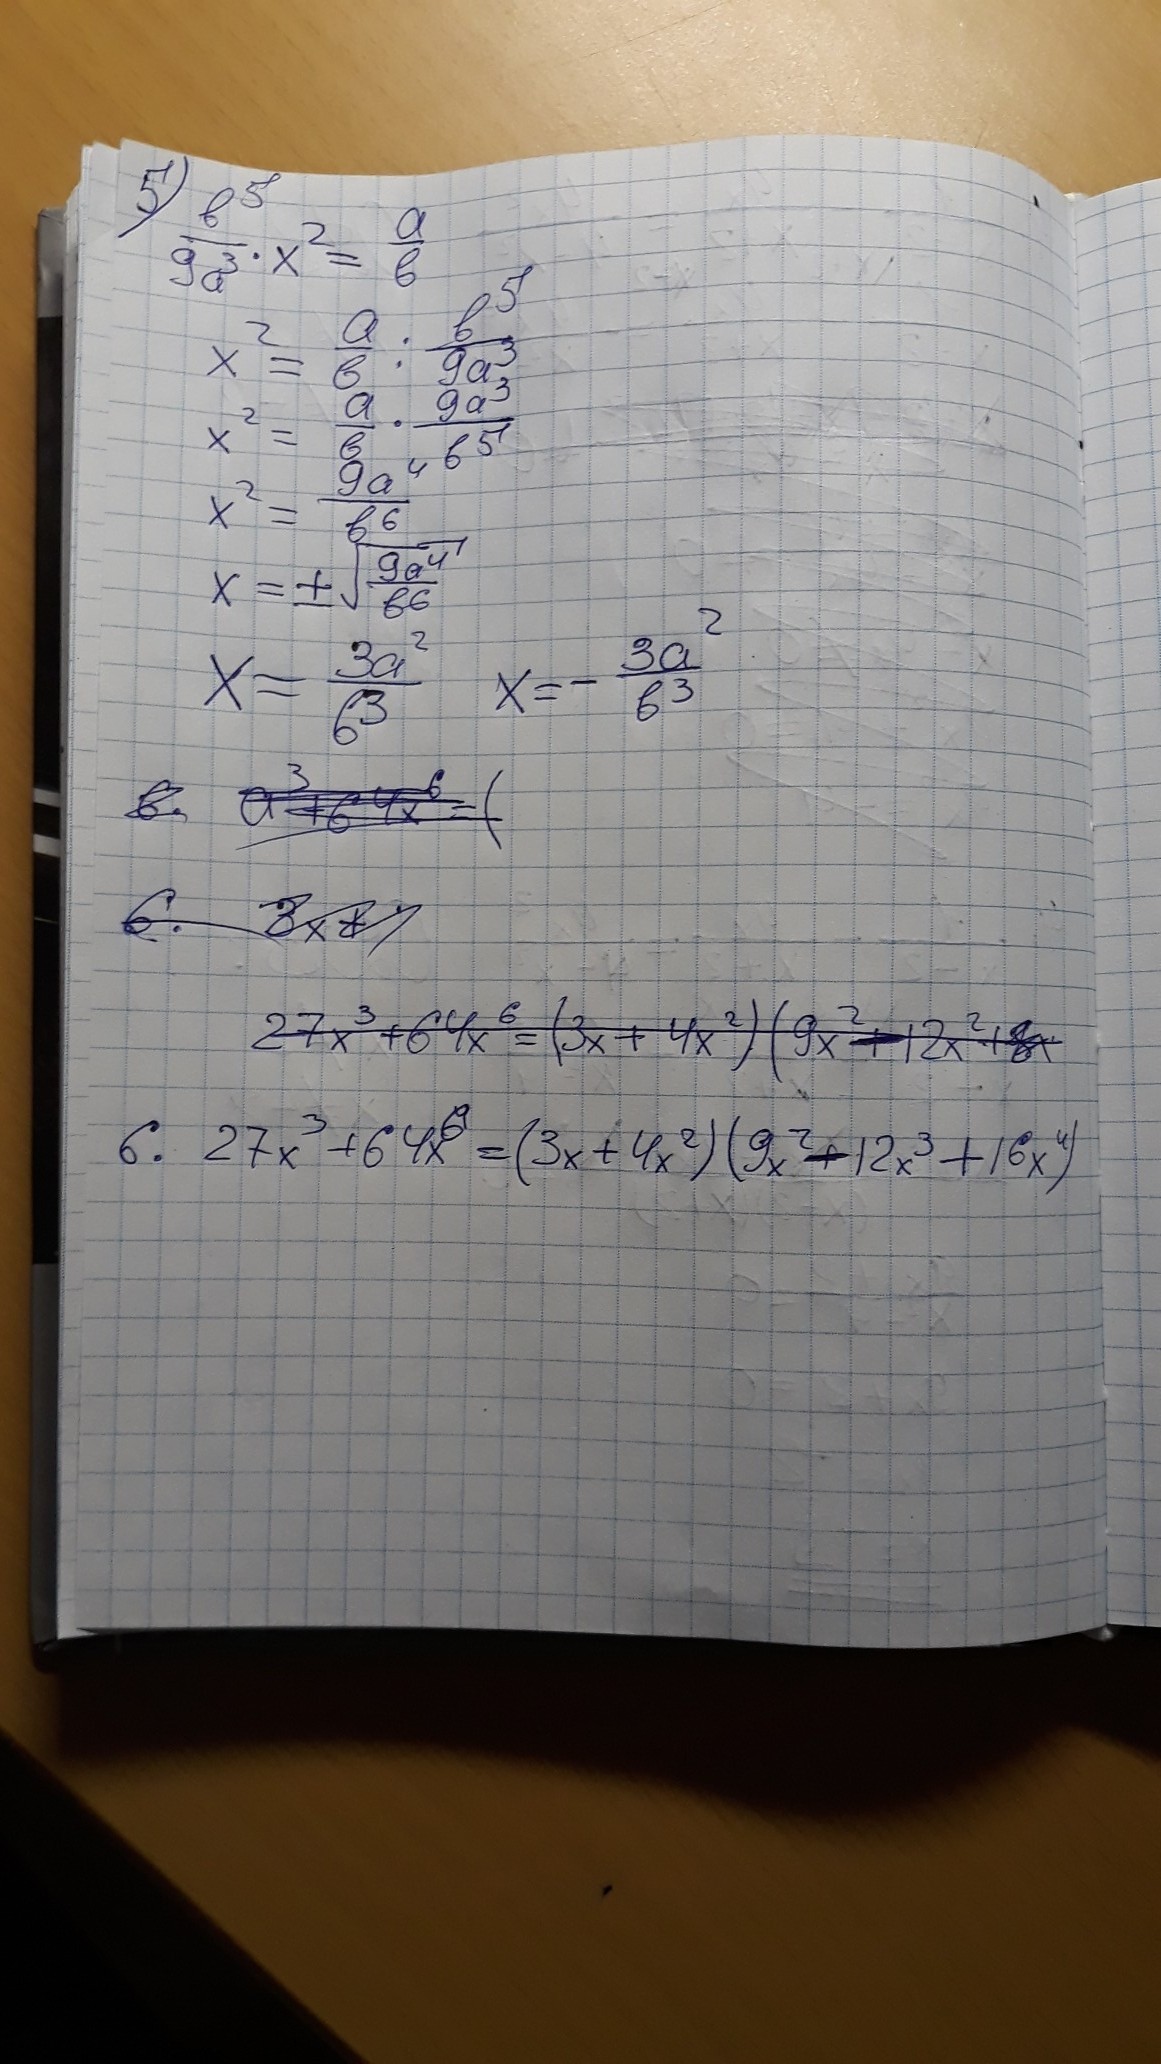 5) в⁵/9a³ · x² = a/в
x² = a/в : в⁵/9a³
x² = a/в · 9a³/в⁵
x² = 9a⁴/в⁶
x = ±√(9a⁴/в⁶)
x = 3a²/в³ x = - 3a²/в³
6. a³+64x⁶ = (
6. 3x+
27x³+64x⁶ = (3x+4x²)(9x² - 12x²+
6. 27x³+64x⁶ = (3x+4x²)(9x² - 12x³+16x⁴)